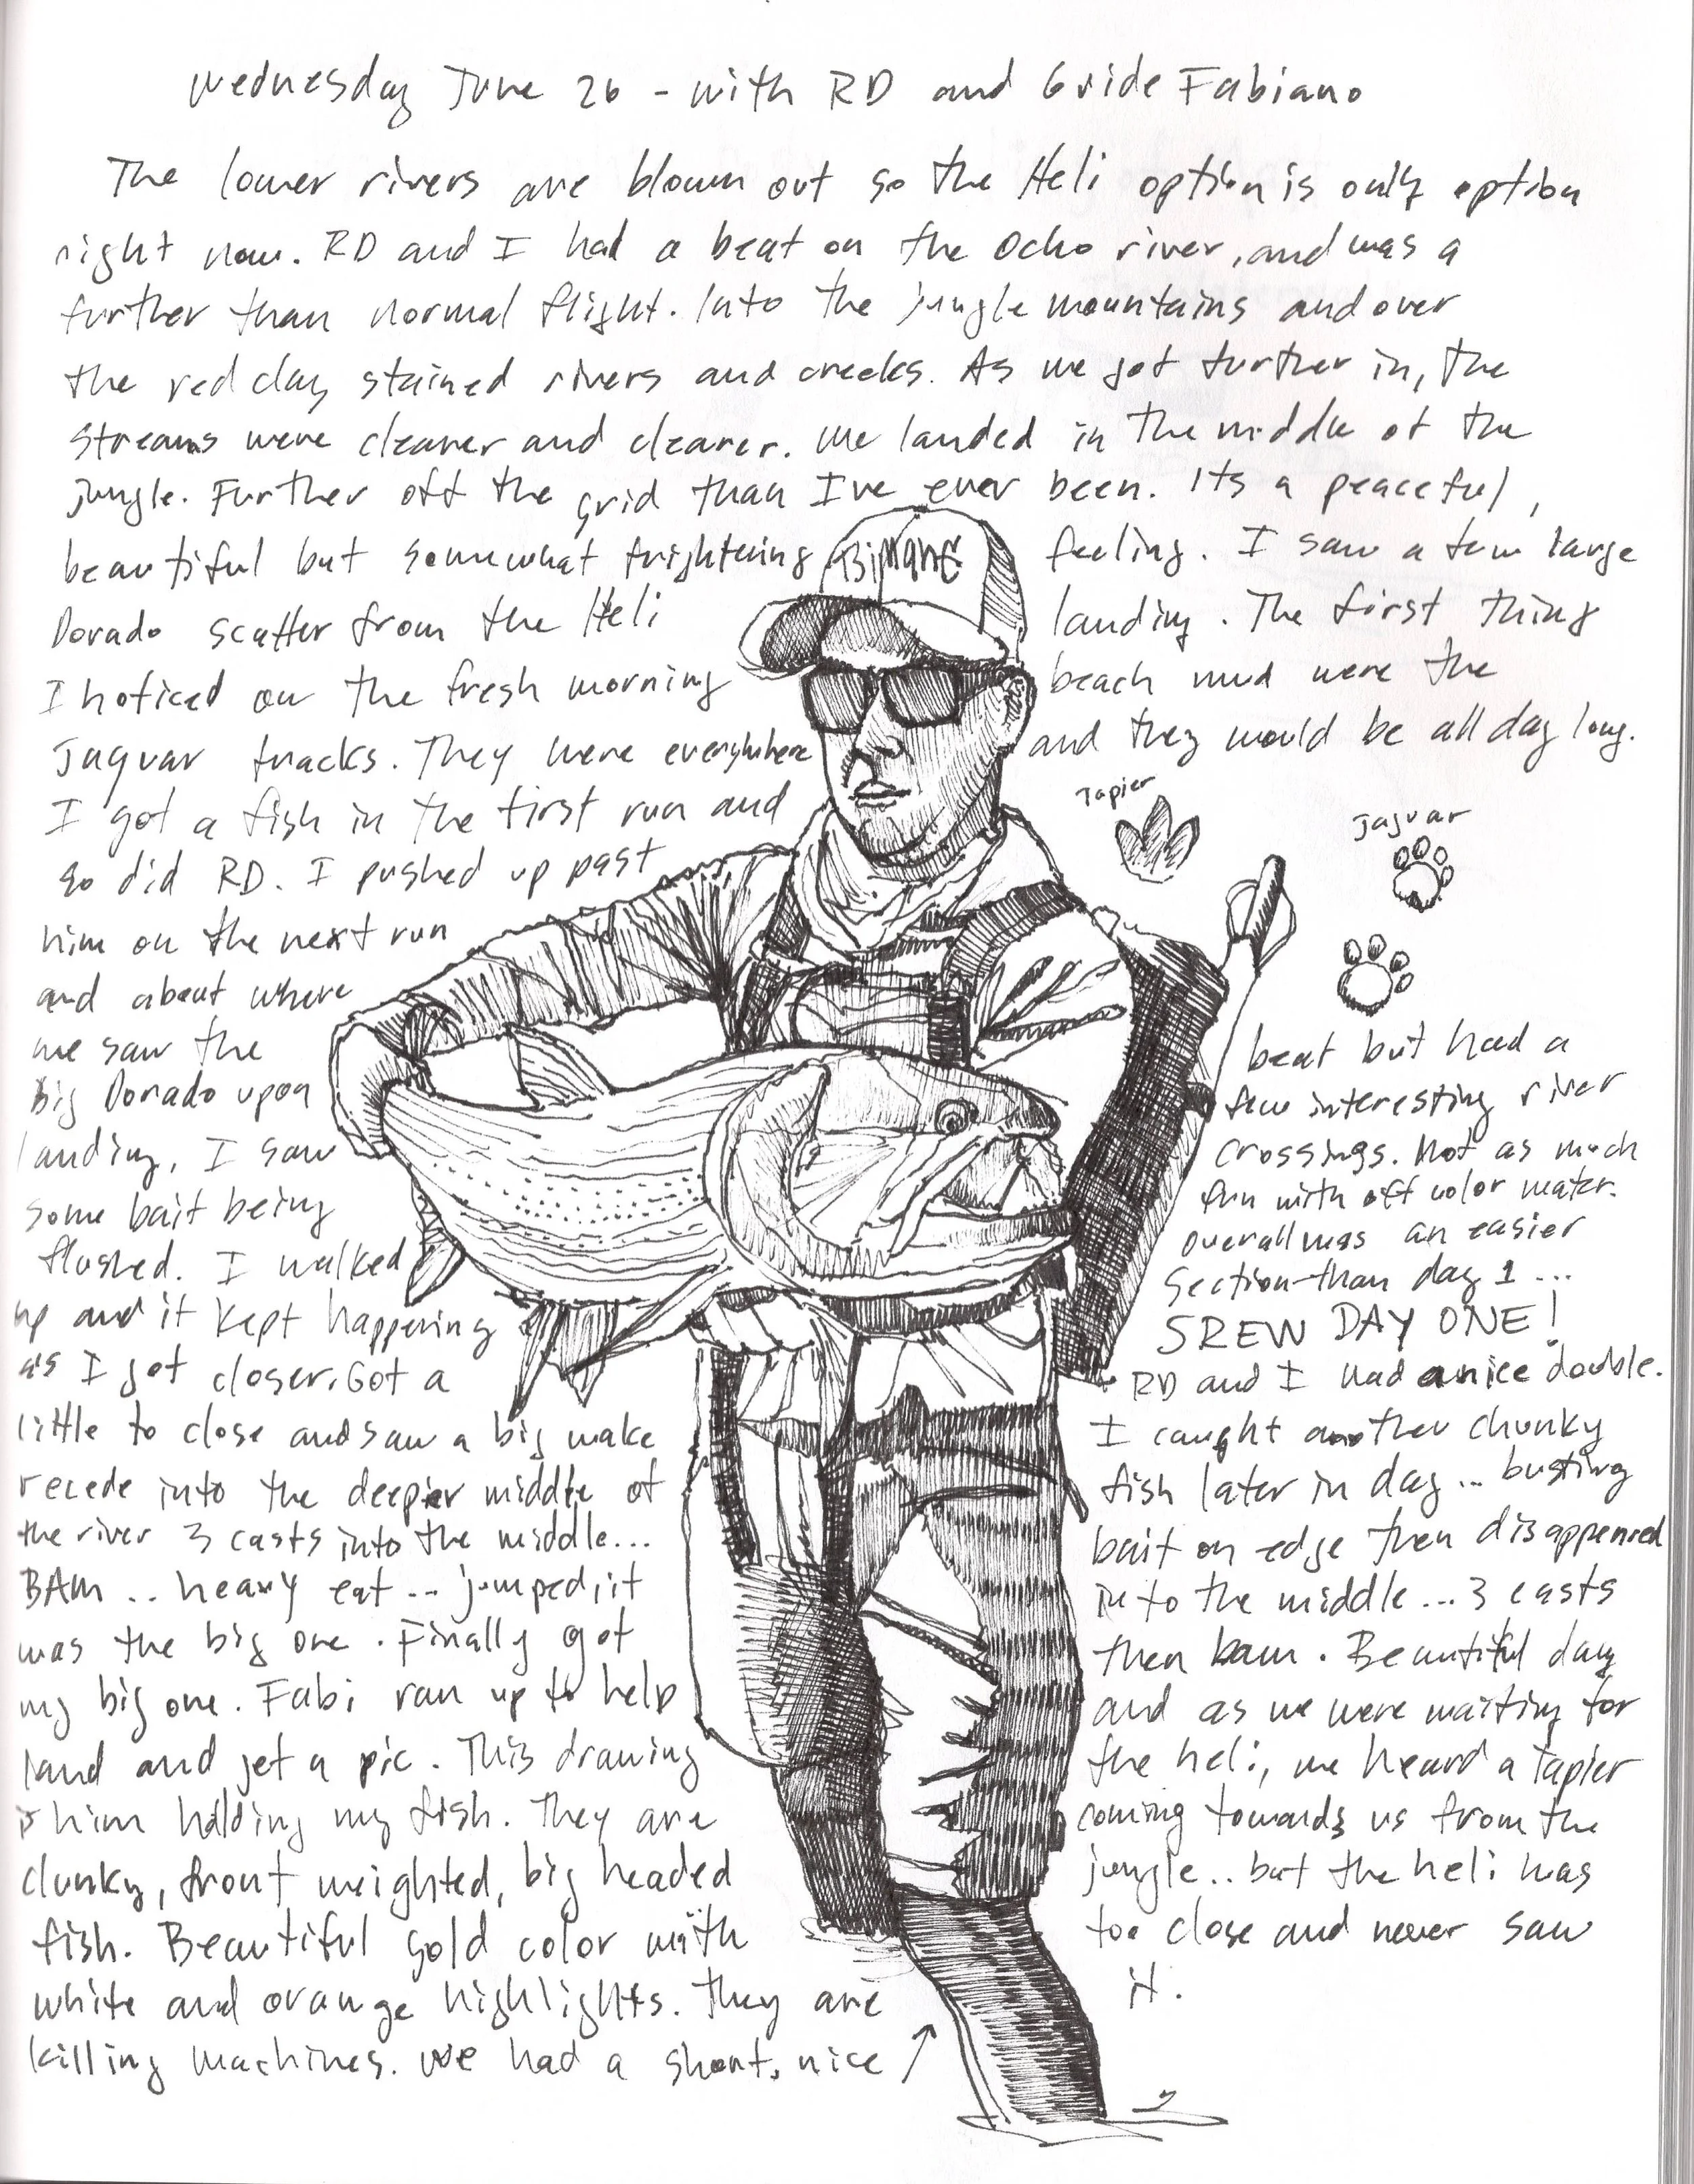 Wednesday June 26 - with RD and Guide Fabiano
The lower rivers are blown out so the Heli option is only option
right now. RD and I had a beat on the Ocho river, and was a
further than normal flight. Into the jungle mountains and over
the red clay stained rivers and creeks. As we got further in, the
streams were clearer and clearer. We landed in the middle of the
jungle. Further off the grid than I've ever been. Its a peaceful,
beautiful but somewhat frightening feeling. I saw a few large
Dorado scatter from the Heli landing. The first thing
I noticed on the fresh morning beach mud were the
Jaguar tracks. They were everywhere and they would be all day long.
I got a fish in the first run and
so did RD. I pushed up past
him on the next run
and about where
we saw the
big Dorado upon
landing, I saw
some bait being
flushed. I walked
up and it kept happening
as I got closer. Got a
little to close and saw a big wake
recede into the deeper middle of
the river 3 casts into the middle...
BAM .. heavy eat ... jumped, it
was the big one. Finally got
my big one. Fabi ran up to help
land and get a pic. This drawing
is him holding my fish. They are
clunky, front weighted, big headed
fish. Beautiful gold color with
white and orange highlights. They are
killing machines. We had a short, nice ↗
Tapier
Jaguar
beat but had a
few interesting river
crossings. Not as much
fun with off color water.
Overall was an easier
section than day 1 ...
SREW DAY ONE!
RD and I had a nice double.
I caught another chunky
fish later in day ... busting
bait on edge then disappenred
into the middle ... 3 casts
then bam. Beautiful day
and as we were waiting for
the heli, we heard a Tapier
coming towards us from the
jungle .. but the heli was
too close and never saw
it.